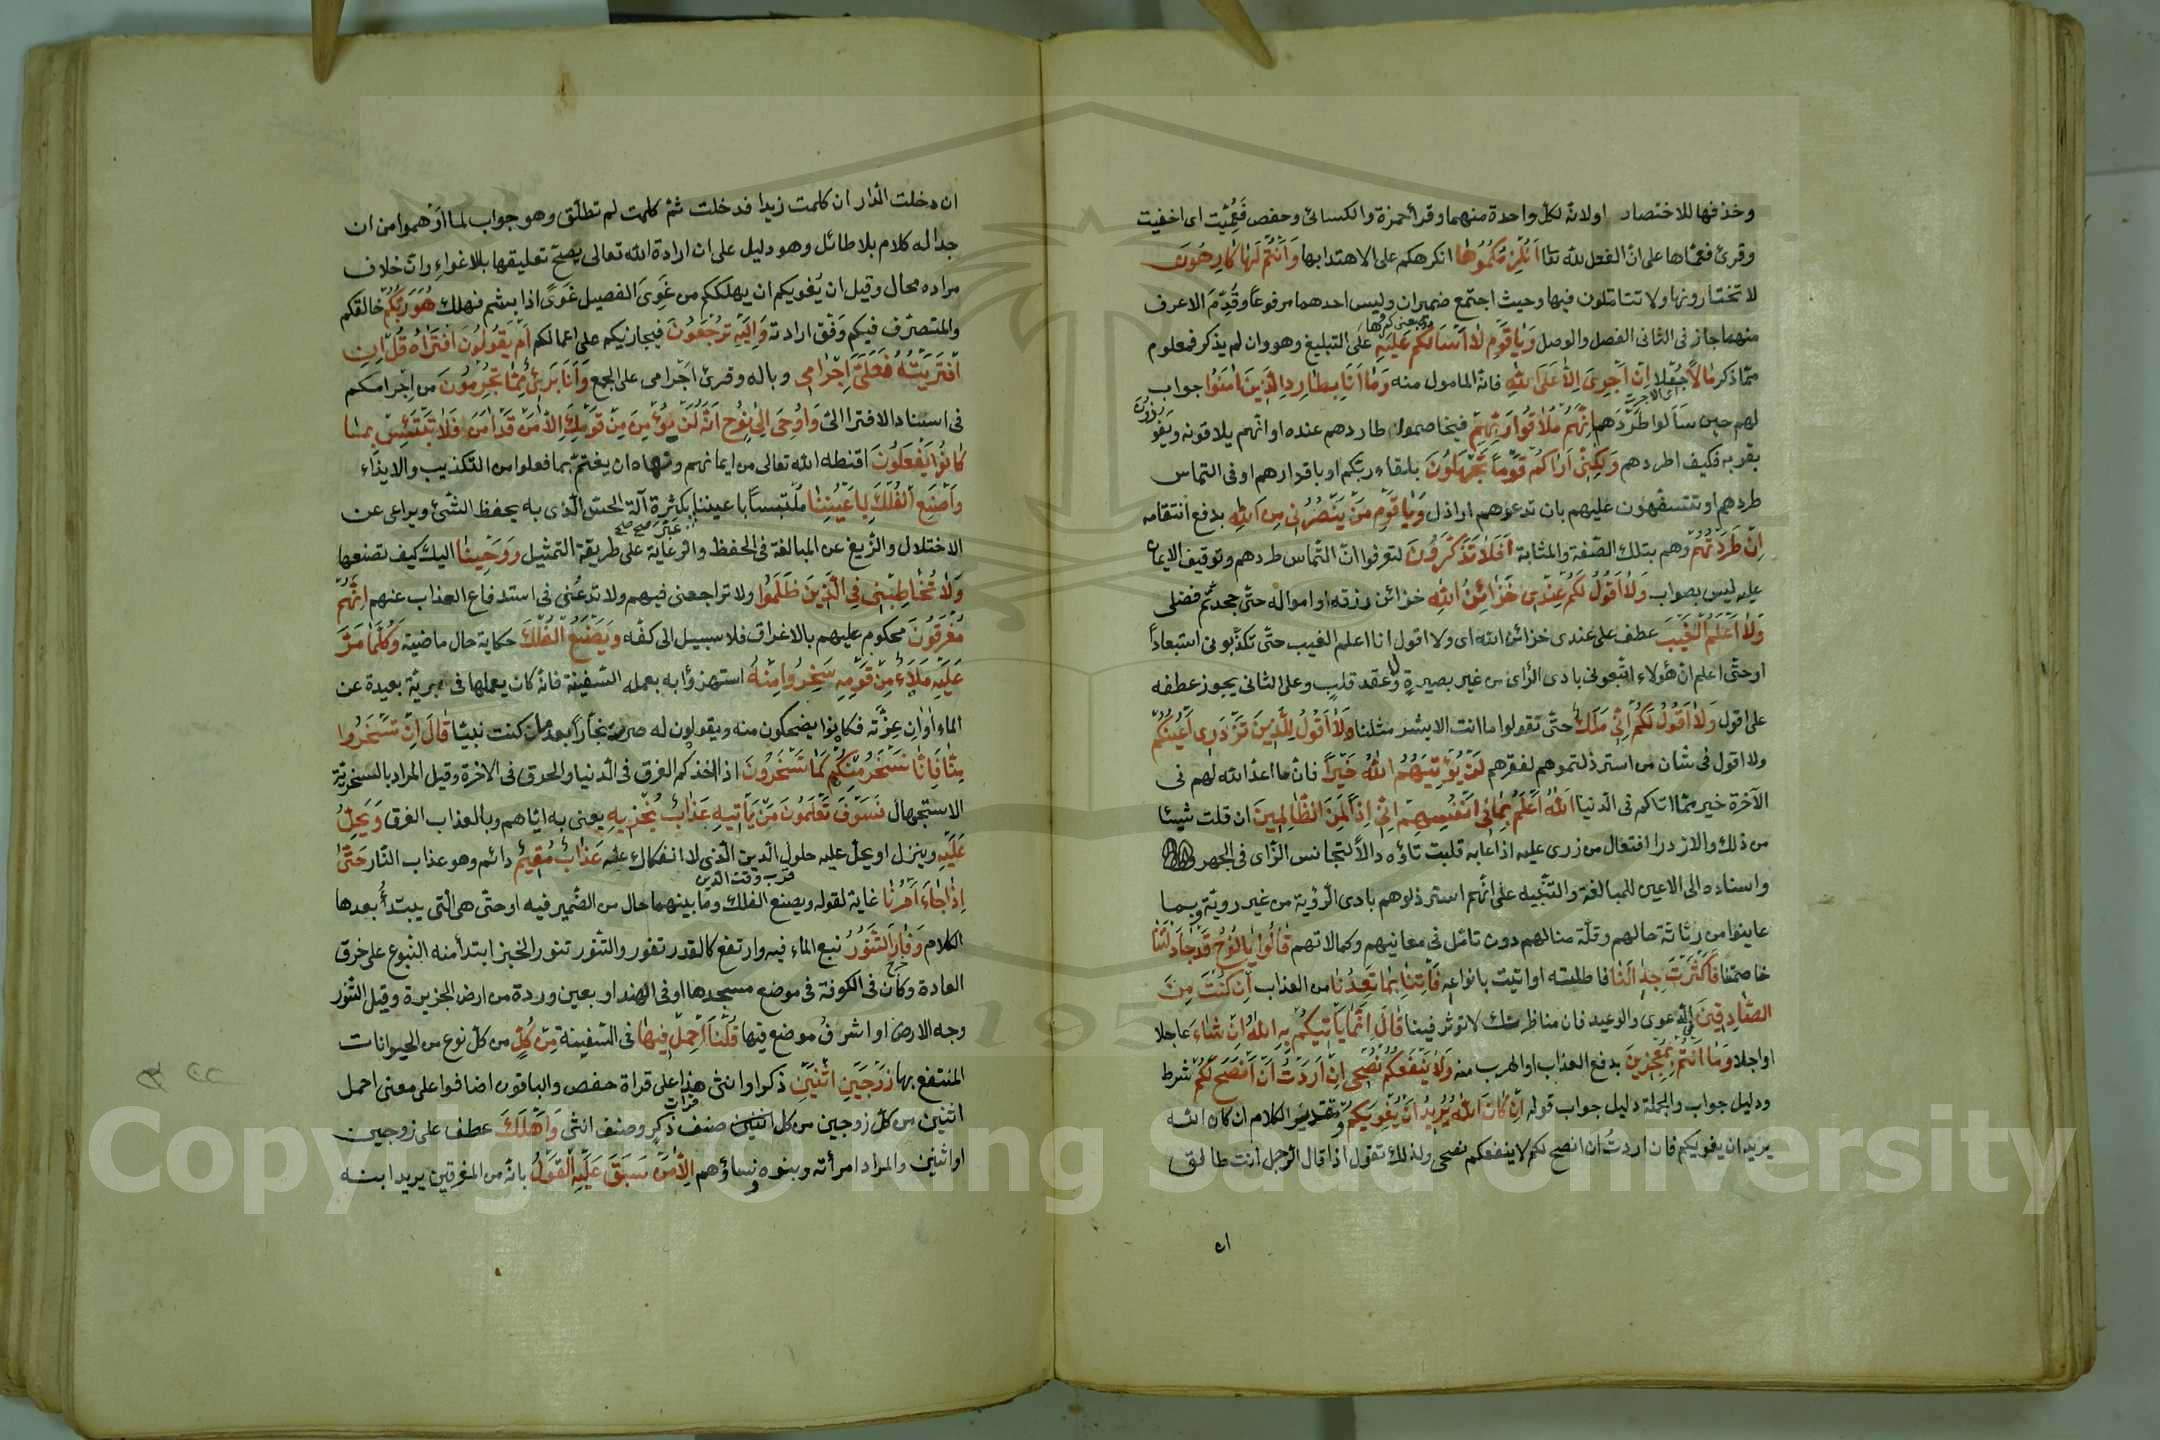 وحذفها للاختصار اولانه لكل واحدة منهما وقرأ حمزة والكسائى وحفص فَعُمِّيَت اى اخفيت
وقرئ فعمّاها على انّ الفعل لله تعا اَنُلْزِمُكُمُوهَا انكرهكم على الاهتدا بها وَاَنْتُمْ لَهَا كَارِهُونَ
لا تختارونها ولا تتاملون فيها وحيث اجتمع ضميران وليس احدهما مرفوعا وقُدِّمَ الاعرف
منهما جاز فى الثانى الفصل والوصل وَيَا قَوْمِ لَا اَسْاَلُكُمْ عَلَيْهِ على التبليغ وهو وان لم يذكر فمعلوم
ممّا ذكر مَالًا جُعْلا اِنْ اَجْرِىَ اِلَّا عَلَى اللهِ فانه المامول منه وَمَا اَنَا بِطَارِدِ الَّذِينَ اٰمَنُوا جواب
لهم حين سَاَلوا طَرْدَهم اِنَّهُمْ مُلَاقُوا رَبِّهِمْ فيخاصمون طاردهم عنده او انهم يلاقونه ويفوزون
بقربه فكيف اطردهم وَلٰكِنِّى اَرَاكُمْ قَوْمًا تَجْهَلُونَ بلقاء ربّكم او باقدارهم او فى التماس
طردهم او تتسفّهون عليهم بان تدعوهم اراذل وَيَا قَوْمِ مَنْ يَنْصُرُنِى مِنَ اللهِ بدفع انتقامه
اِنْ طَرَدْتُهُمْ وهم بتلك الصّفة والمثابة اَفَلَا تَذَكَّرُونَ لتعرفوا انّ التماس طردهم وتوقيف الايمان
عليه ليس بصواب وَلَا اَقُولُ لَكُمْ عِنْدِى خَزَائِنُ اللهِ خزائن رزقه او امواله حتّى جحدتم فضلى
وَلَا اَعْلَمُ الْغَيْبَ عطف على عندى خزائن الله اى ولا اقول انا اعلم الغيب حتّى تكذّبونى استبعادًا
او حتّى اعلم انّ هٰؤلاء اتّبعونى بادى الرّاى من غير بصيرةٍ وعقد قلبٍ وعلى الثانى يجوز عطفه
على اقول وَلَا اَقُولُ لَكُمْ اِنِّى مَلَكٌ حتّى تقولوا ما انت الا بشر مثلنا وَلَا اَقُولُ لِلَّذِينَ تَزْدَرِى اَعْيُنُكُمْ
ولا اقول فى شان من استرذلتموهم لفقرهم لَنْ يُؤْتِيَهُمُ اللهُ خَيْرًا فانّ ما اعدّ الله لهم فى
الآخرة خير ممّا اتاكم فى الدنيا اَللهُ اَعْلَمُ بِمَا فِى اَنْفُسِهِمْ اِنِّى اِذًا لَمِنَ الظَّالِمِينَ ان قلت شيئا
من ذلك والازدرا افتعال من زرى عليه اذا عابه قلبت تاؤه دالًا لتجانس الزّاى فى الجهر
واسناده الى الاعين للمبالغة والتنبيه على انّهم استرذلوهم بادى الرّؤية من غير رويّة وبما
عاينوا من رثاثة حالهم وقلّة منالهم دون تامّل فى معانيهم وكمالاتهم قَالُوا يَا نُوحُ قَدْ جَادَلْتَنَا
خاصمتنا فَاَكْثَرْتَ جِدَالَنَا فاطلته او اتيت بانواعه فَأْتِنَا بِمَا تَعِدُنَا من العذاب اِنْ كُنْتَ مِنَ
الصَّادِقِينَ فى الدّعوى والوعيد فان مناظرتك لا توثر فينا قَالَ اِنَّمَا يَأْتِيكُمْ بِهِ اللهُ اِنْ شَاءَ عاجلا
او اجلا وَمَا اَنْتُمْ بِمُعْجِزِينَ بدفع العذاب او الهرب منه وَلَا يَنْفَعُكُمْ نُصْحِى اِنْ اَرَدْتُ اَنْ اَنْصَحَ لَكُمْ شرط
ودليل جواب والجملة دليل جواب قوله اِنْ كَانَ اللهُ يُرِيدُ اَنْ يُغْوِيَكُمْ وتقدير الكلام ان كان الله
يريد ان يغويكم فان اردتُ ان انصح لكم لا ينفعكم نصحى ولذلك تقول اذا قال الرّجل انت طالق
ان
ان دخلت الدار ان كلمت زيدا فدخلت ثمّ كلمت لم تطلّق وهو جواب لما اوهموا من ان
جداله كلام بلا طائل وهو دليل على ان ارادة الله تعالى يصحّ تعليقها بالاغواءِ وانّ خلاف
مراده محال وقيل ان يُغويكم ان يهلككم من غَوِىَ الفصيل غَوًى اذا بشم فهلك هُوَ رَبُّكُمْ خالقكم
والمتصرّف فيكم وَفق ارادته وَاِلَيْهِ تُرْجَعُونَ فيجازيكم على اعمالكم اَمْ يَقُولُونَ افْتَرَاهُ قُلْ اِنِ
افْتَرَيْتُهُ فَعَلَىَّ اِجْرَامِى وباله وقرئ اجرامى على الجمع وَاَنَا بَرِىءٌ مِمَّا تُجْرِمُونَ من اجرامكم
فى اسناد الافترا الىّ وَاُوحِىَ اِلَى نُوحٍ اَنَّهُ لَنْ يُؤْمِنَ مِنْ قَوْمِكَ اِلَّا مَنْ قَدْ اٰمَنَ فَلَا تَبْتَئِسْ بِمَا
كَانُوا يَفْعَلُونَ اقنطه الله تعالى من ايمانهم ونهاه ان يغتمّ بما فعلوا من التكذيب والايذاء
وَاصْنَعِ الْفُلْكَ بِاَعْيُنِنَا ملتبسًا باعيننا عبّر بكثرة آلة الحسّ الّذى به يحفظ الشئ ويراعى عن
الاختلال والزّيغ عن المبالغة فى الحفظ والرعاية على طريقة التمثيل وَوَحْيِنَا اليك كيف تصنعها
وَلَا تُخَاطِبْنِى فِى الَّذِينَ ظَلَمُوا ولا تراجعنى فيهم ولا تدعُنى فى استدفاع العذاب عنهم اِنَّهُمْ
مُغْرَقُونَ محكوم عليهم بالاغراق فلا سبيل الى كفّه وَيَصْنَعُ الْفُلْكَ حكاية حال ماضية وَكُلَّمَا مَرَّ
عَلَيْهِ مَلَاٌ مِنْ قَوْمِهِ سَخِرُوا مِنْهُ استهزؤا به بعمله السّفينة فانه كان يعملها فى برية بعيدة عن
الماء اوان عِزّته فكانوا يضحكون منه ويقولون له صرت نجّارًا بعد مَا كنت نبيّا قَالَ اِنْ تَسْخَرُوا
مِنَّا فَاِنَّا نَسْخَرُ مِنْكُمْ كَمَا تَسْخَرُونَ اذا اخذكم الغرق فى الدنيا والحرق فى الاخرة وقيل المراد بالسخرية
الاستجهال فَسَوْفَ تَعْلَمُونَ مَنْ يَأْتِيهِ عَذَابٌ يُخْزِيهِ يعنى به ايّاهم وبالعذاب الغرق وَيَحِلُّ
عَلَيْهِ وينزل او يحلّ عليه حلول الدين الّذى لا انفكاك عنه عَذَابٌ مُقِيمٌ دائم وهو عذاب النّار حَتَّى
اِذَا جَاءَ اَمْرُنَا غاية لقوله ويصنع الفلك وما بينهما حال من الضّمير فيه او حتّى هى الّتى يبتدأ بعدها
الكلام وَفَارَ التَّنُّورُ نبع الماء فيه وارتفع كالقدر تفور والتنّور تنور الخبز ابتدأ منه النّبوع على خرق
العادة وكان فى الكوفة فى موضع مسجدها او فى الهند او بعين وردة من ارض الجزيرة وقيل التنّور
وجه الارض او اشرف موضع فيها قُلْنَا احْمِلْ فِيهَا فى السّفينة مِنْ كُلٍّ من كلّ نوع من الحيوانات
المنتفع بها زَوْجَيْنِ اثْنَيْنِ ذكرا وانثى هذا على قراة حفص والباقون اضافوا على معنى احمل
اثنين من كلّ زوجين من كل صنف ذكر وصنف انثى وَاَهْلَكَ عطف على زوجين
او اثنين والمراد امرأته وبنوه ونساؤهم اِلَّا مَنْ سَبَقَ عَلَيْهِ الْقَوْلُ بانّه من المغرقين يريد ابنه
Copyright © King Saud University